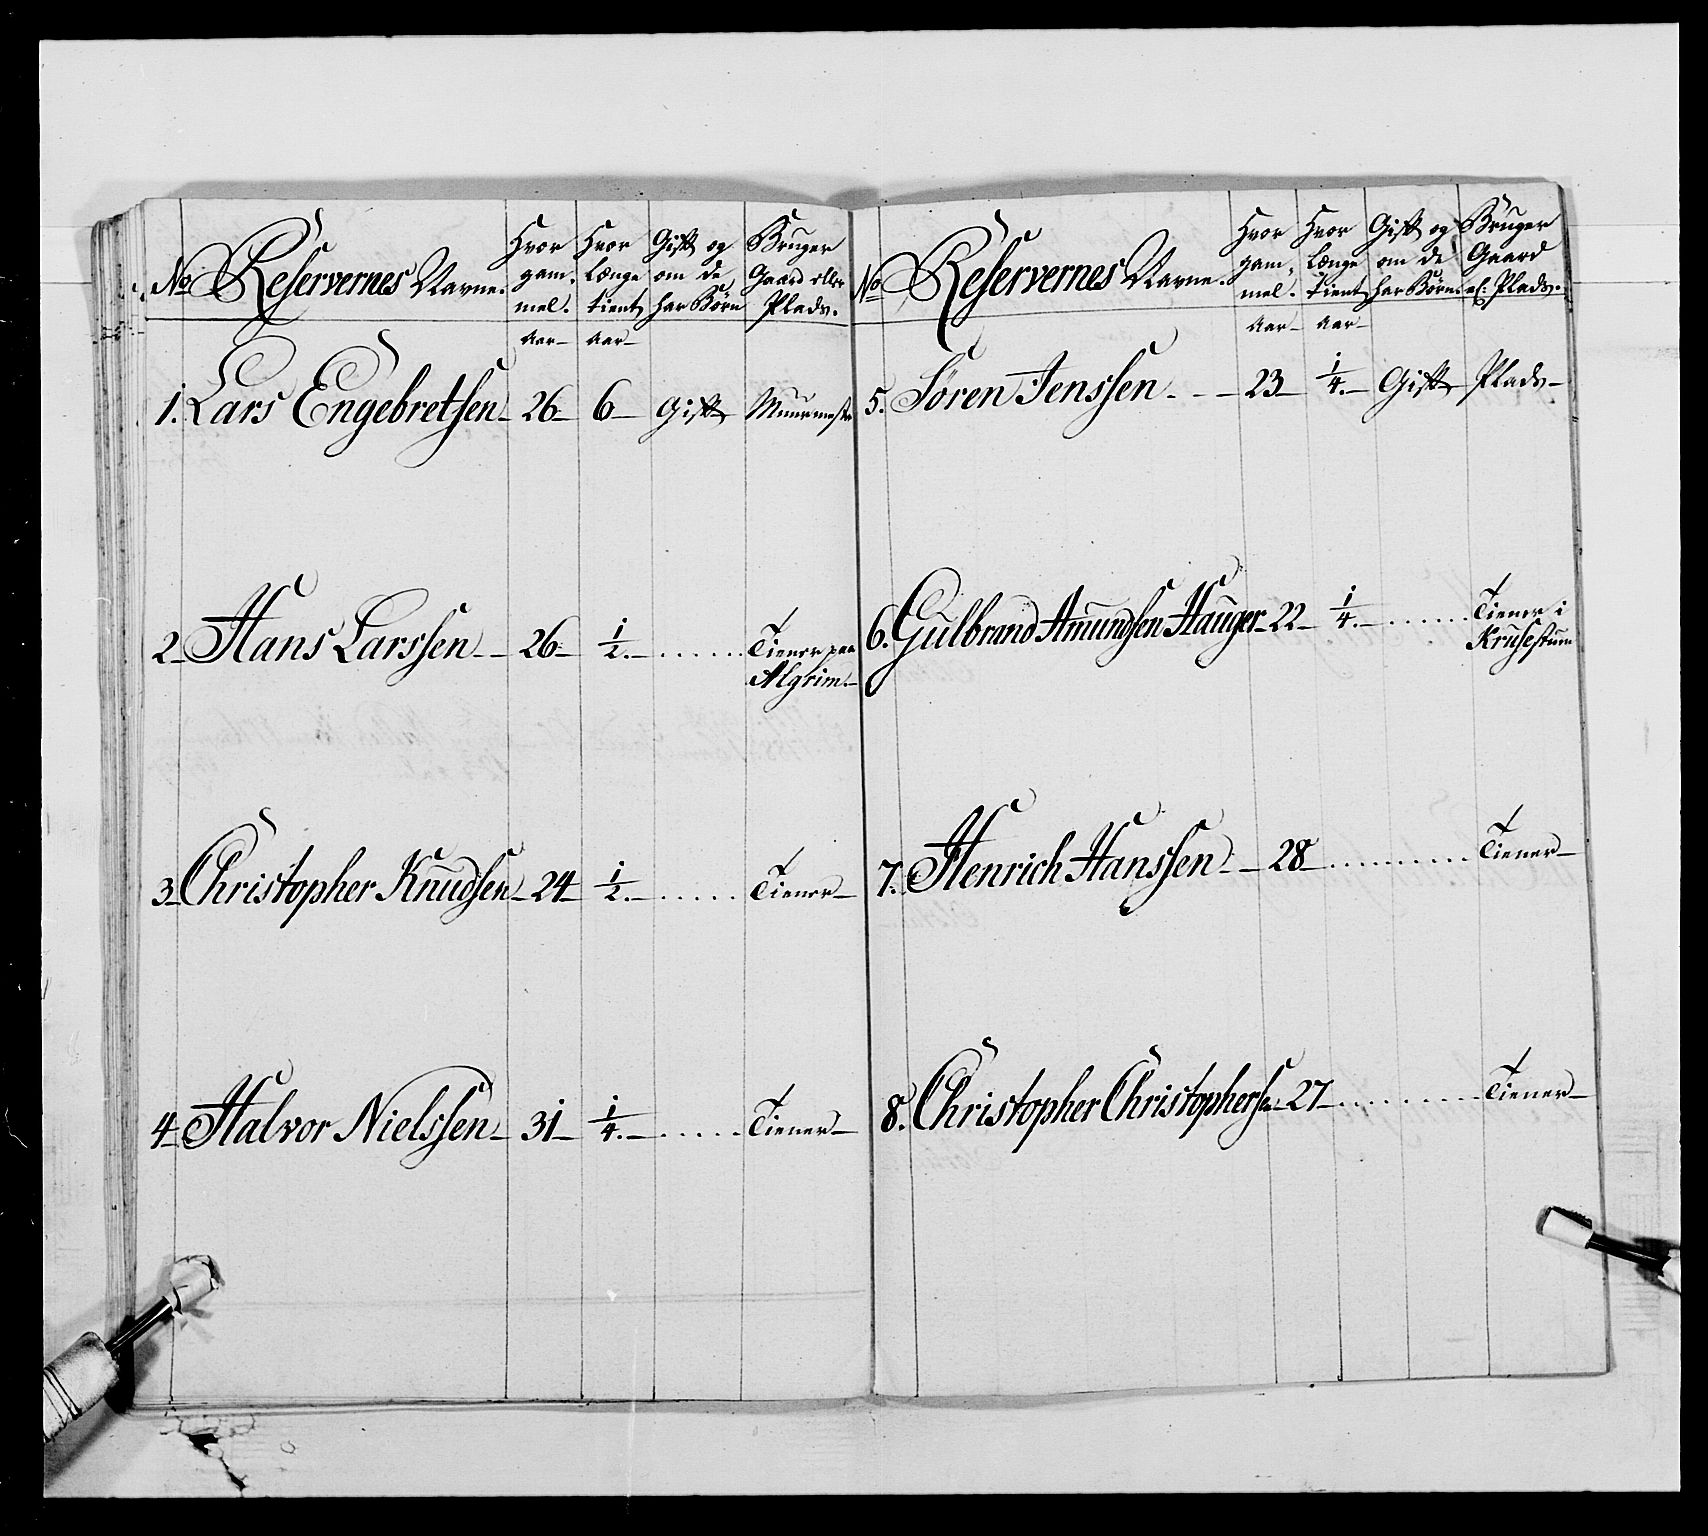 No Reservernes Navne. Hvor gam- mel. Hvor længe tient Gift og om de har Børn Bruger Gaard eller Plads.
Aar Aar
1. Lars Engebretsen 26 6 Gift Muurmest
2 Hans Larssen 26 1/2. Tiener paa
Algrim
3 Christopher Knudsen 24 1/2. Tiener
4 Halvor Nielssen 31 1/4. Tiener
No Reservernes Navne. Hvor gam- mel. Hvor længe tient Gift og om de har Børn. Bruger Gaard el: Plads.
Aar Aar
5. Søren Jenssen 23 1/4. Gift Plads
6. Gulbrand Amundsen Hauger 22 1/4. Tiener i
Krusestuen
7. Henrich Hanssen 28 Tiener
8. Christopher Christophersen 27 Tiener